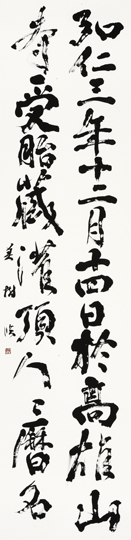 弘仁三年十二月十四日於高雄山
寺受胎藏灌頂人々暦名
臨